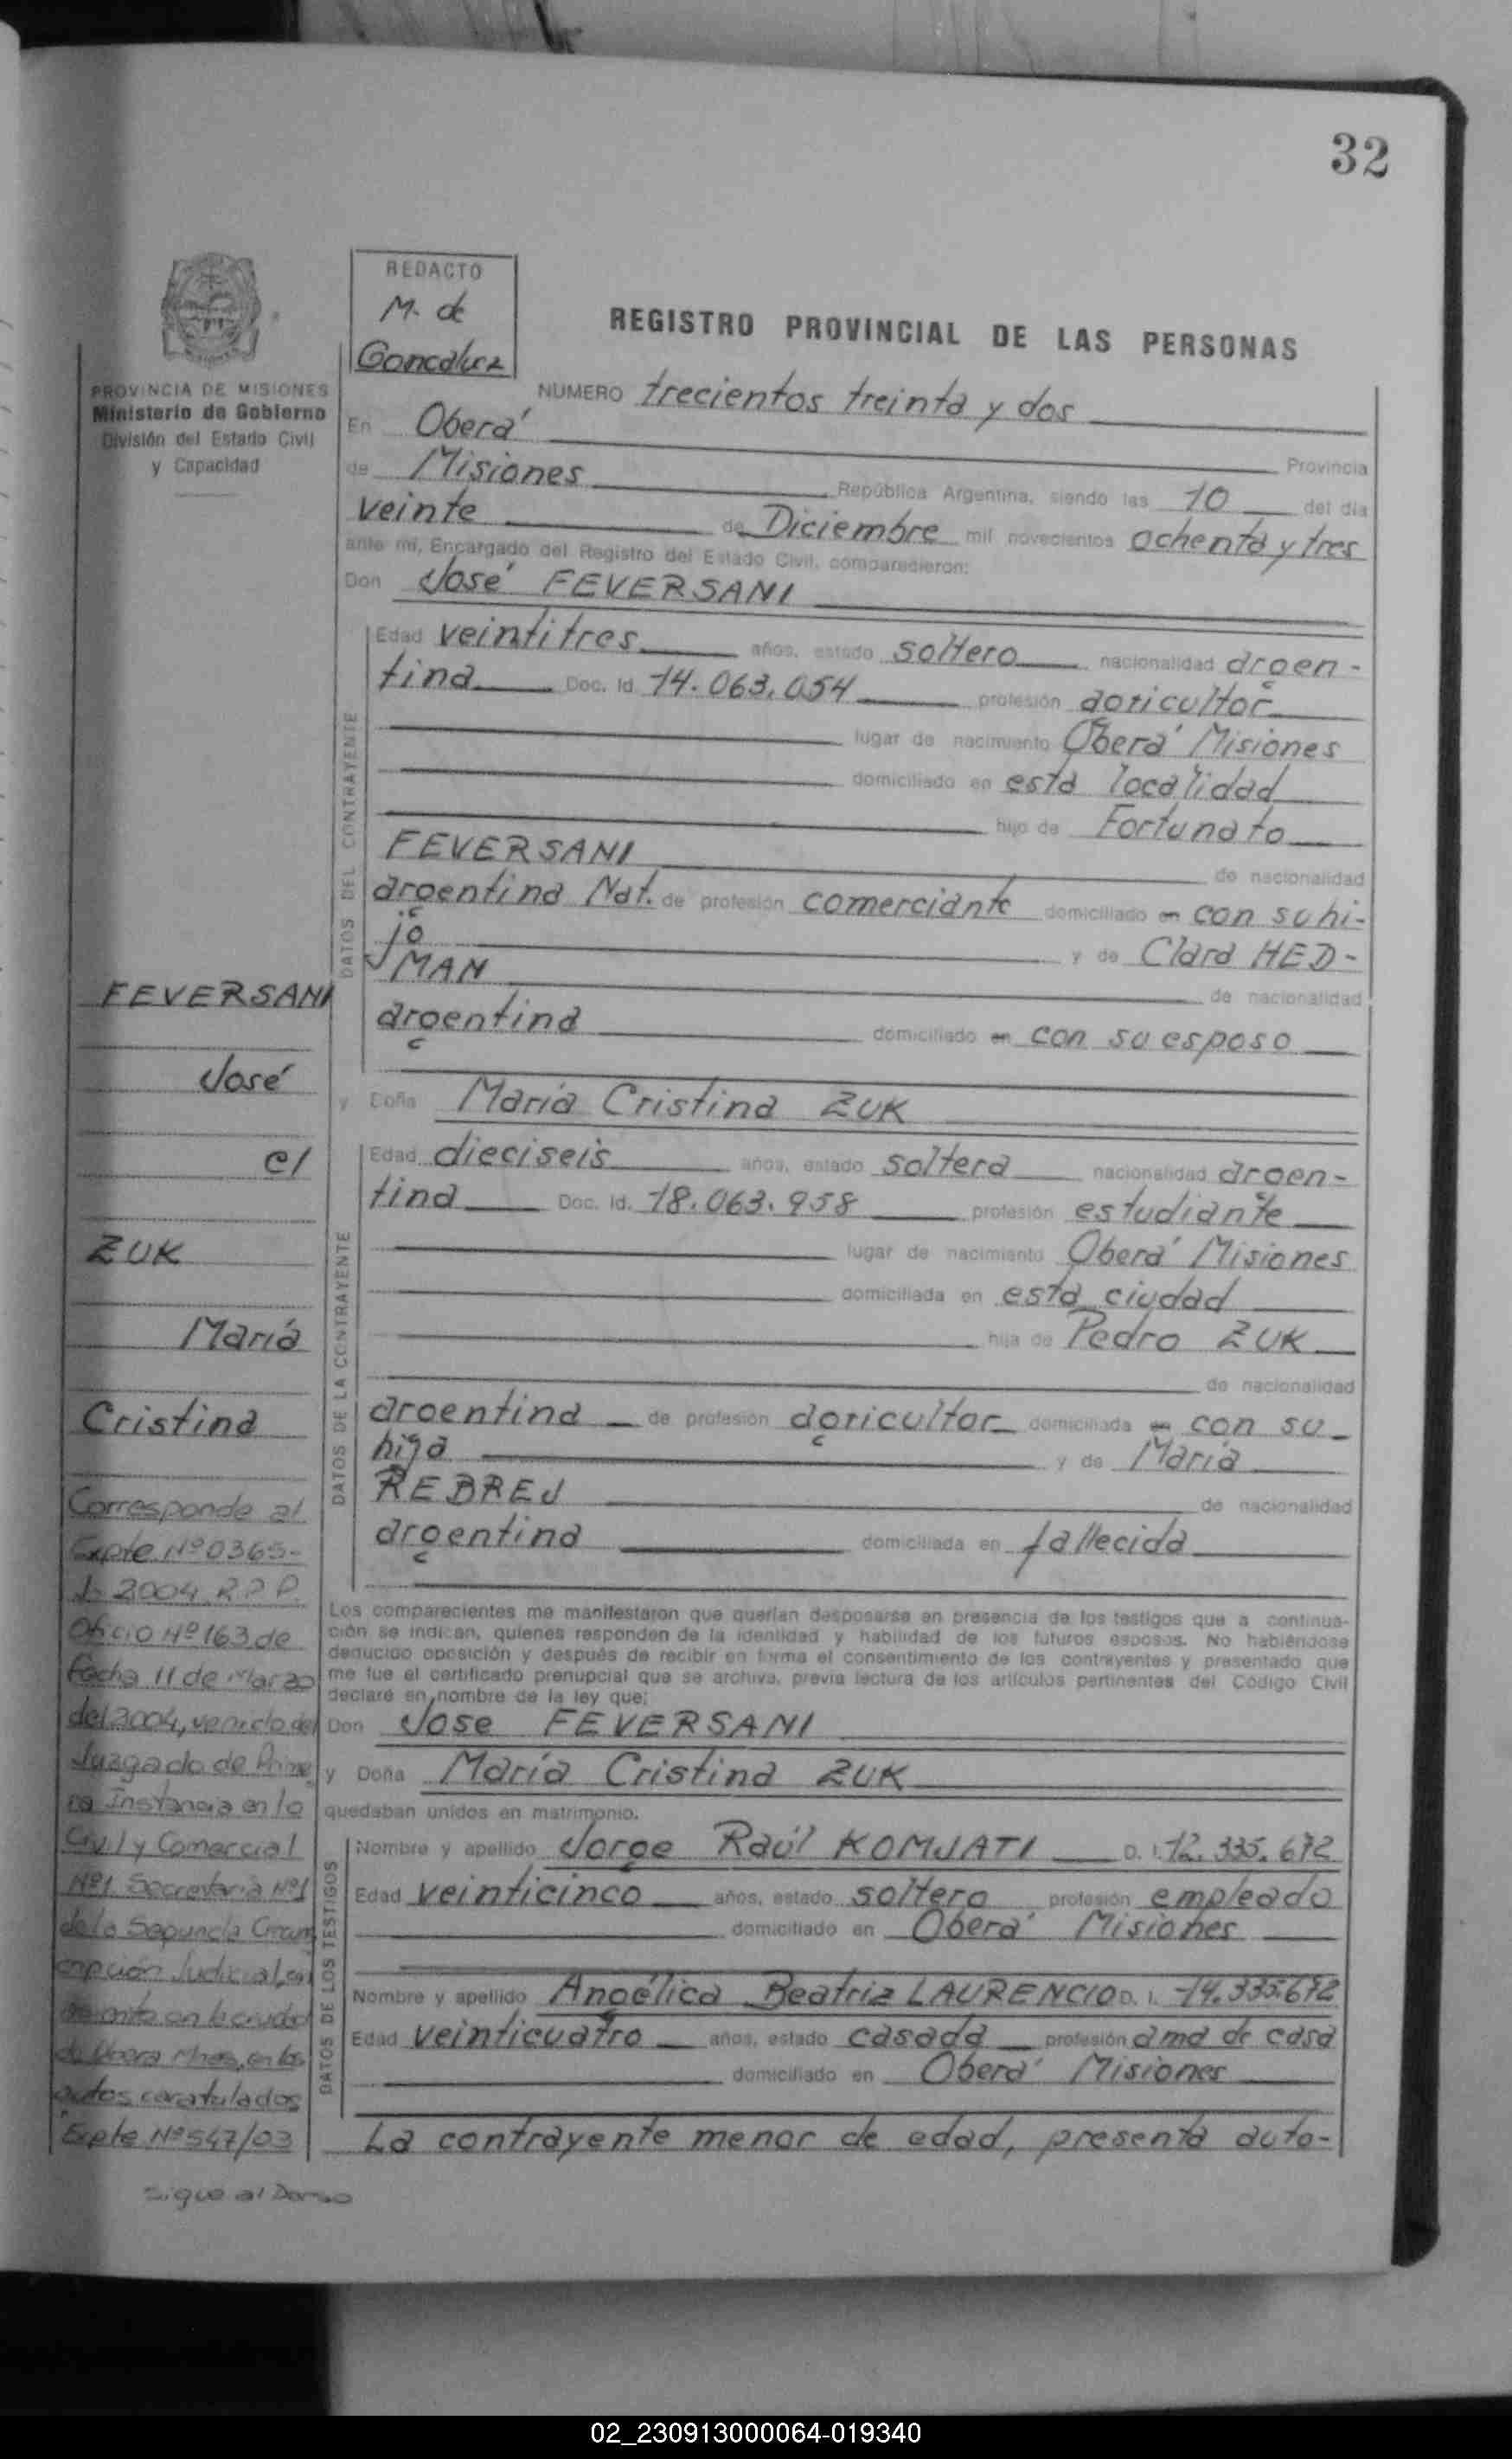 32
REDACTO
M. de
Goncalvez
REGISTRO PROVINCIAL DE LAS PERSONAS
PROVINCIA DE MISIONES
Ministerio de Gobierno
División del Estado Civil
y Capacidad
NUMERO trecientos treinta y dos
En Oberá Provincia
de Misiones República Argentina, siendo las 10 del día
veinte de Diciembre mil novecientos ochenta y tres
ante mí, Encargado del Registro del Estado Civil, comparecieron:
Don José FEVERSANI
DATOS DEL CONTRAYENTE
Edad veintitres años, estado soltero nacionalidad argen-
tina Doc. Id. 14.063.054 profesión agricultor
lugar de nacimiento Oberá Misiones
domiciliado en esta localidad
hijo de Fortunato
FEVERSANI de nacionalidad
argentina Nat. de profesión comerciante domiciliado en con su hi-
jo y de Clara HED-
MAN de nacionalidad
argentina domiciliado en con su esposo
y Doña María Cristina ZUK
DATOS DE LA CONTRAYENTE
Edad dieciseis años, estado soltera nacionalidad argen-
tina Doc. Id. 18.063.958 profesión estudiante
lugar de nacimiento Oberá Misiones
domiciliada en esta ciudad
hija de Pedro ZUK
de nacionalidad
argentina de profesión agricultor domiciliada en con su
hija y de María
REBREJ de nacionalidad
argentina domiciliada en fallecida
Los comparecientes me manifestaron que querían desposarse en presencia de los testigos que a continua-
ción se indican, quienes responden de la identidad y habilidad de los futuros esposos. No habiéndose
deducido oposición y después de recibir en forma el consentimiento de los contrayentes y presentado que
me fue el certificado prenupcial que se archiva, previa lectura de los artículos pertinentes del Código Civil
declaré en nombre de la ley que:
Don Jose FEVERSANI
y Doña María Cristina ZUK
quedaban unidos en matrimonio.
DATOS DE LOS TESTIGOS
Nombre y apellido Jorge Raúl KOMJATI D. I. 12.335.672
Edad veinticinco años, estado soltero profesión empleado
domiciliado en Oberá Misiones
Nombre y apellido Angélica Beatriz LAURENCIO D. I. 14.335.672
Edad veinticuatro años, estado casada profesión ama de casa
domiciliado en Oberá Misiones
La contrayente menor de edad, presenta auto-
FEVERSANI
José
c/
ZUK
María
Cristina
Corresponde al
Expte. Nº 0365-
J- 2004 R.P.P.
Oficio Nº 163 de
Fecha 11 de Marzo
del 2004, venido del
Juzgado de Prime
ra Instancia en lo
Civil y Comercial
Nº1 Secretaría Nº1
de la Segunda Circuns
cripción Judicial, con
asiento en la ciudad
de Obera Mnes, en los
autos caratulados
"Expte Nº 547/03
Sigue al Dorso
02_230913000064-019340